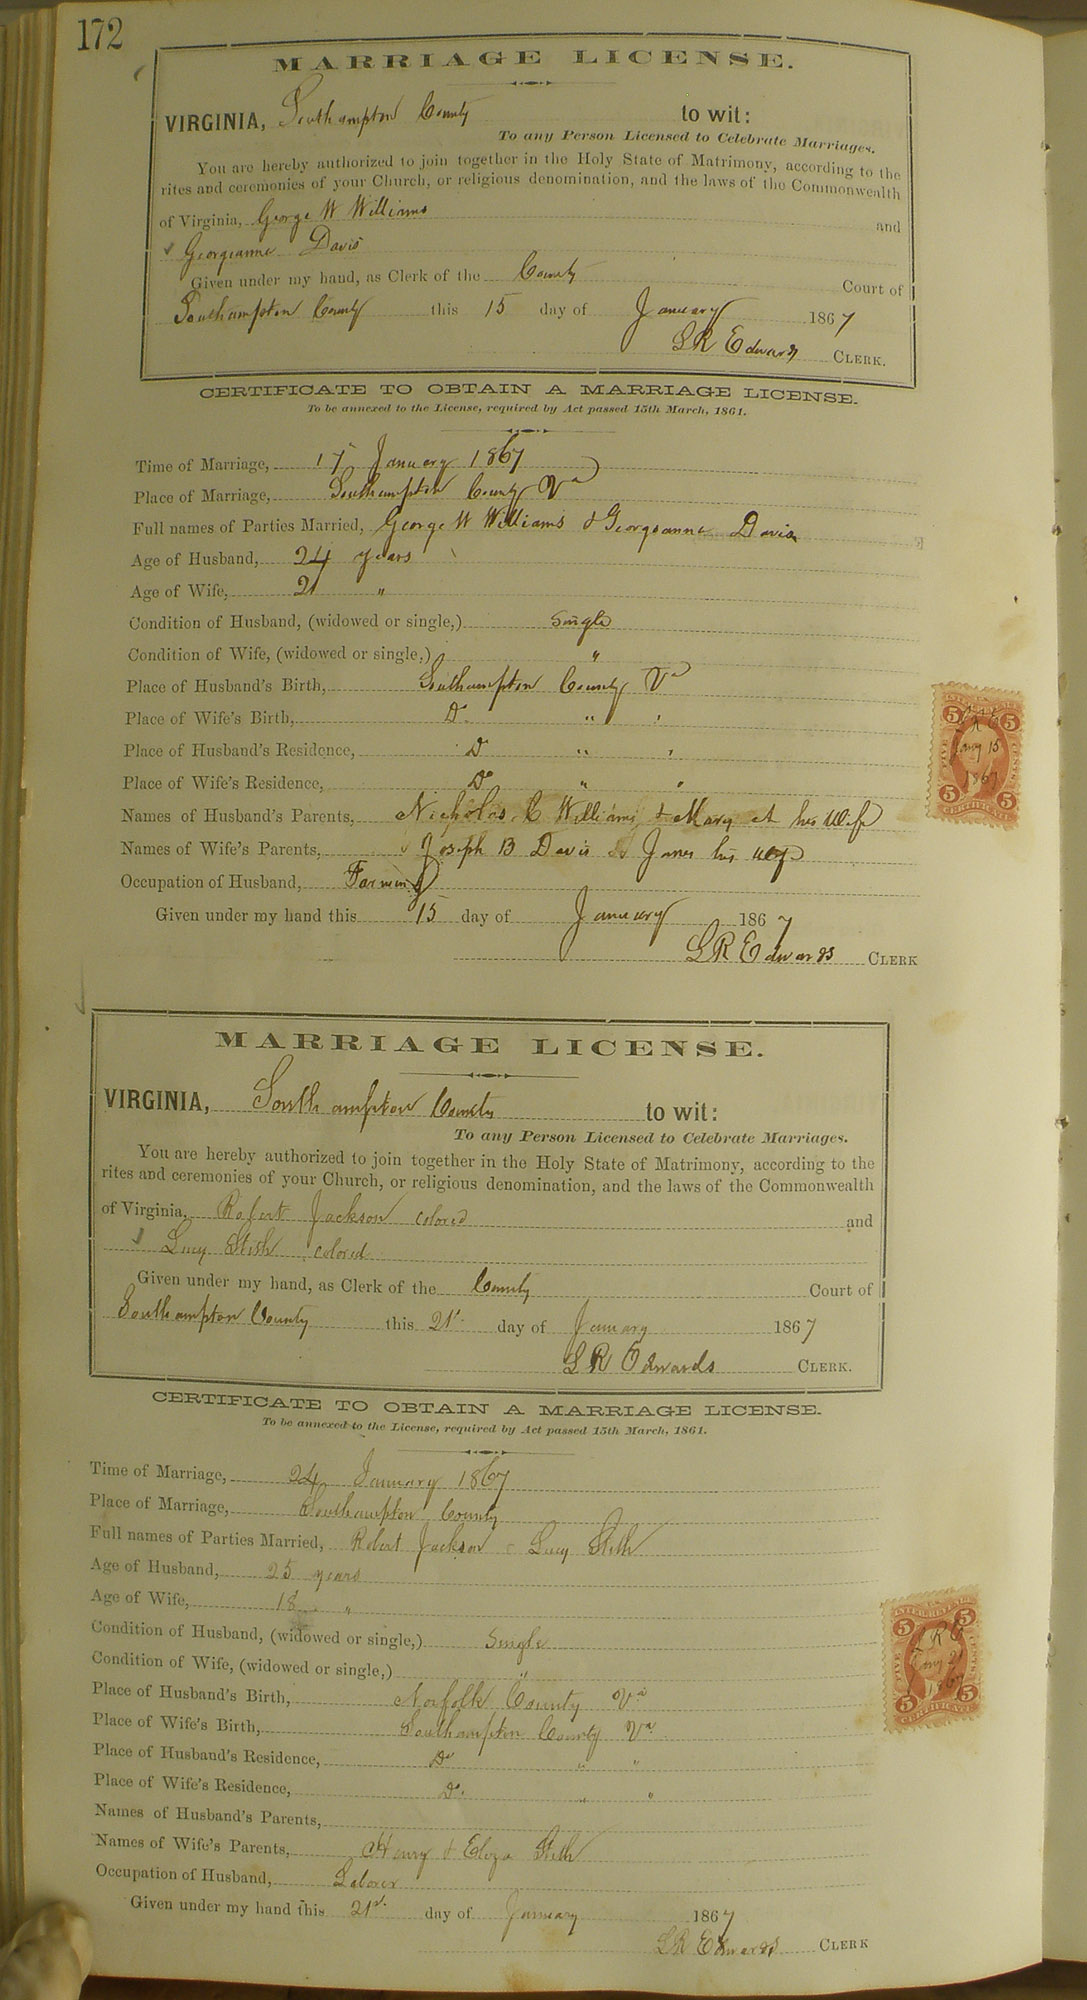 172
MARRIAGE LICENSE.
VIRGINIA, Southampton County to wit:
To any Person Licensed to Celebrate Marriages.
You are hereby authorized to join together in the Holy State of Matrimony, according to the
rites and ceremonies of your Church, or religious denomination, and the laws of the Commonwealth
of Virginia, George W Williams and
Georgeanna Davis
Given under my hand, as Clerk of the County Court of
Southampton County this 15 day of January 1867
LR Edwards CLERK.
CERTIFICATE TO OBTAIN A MARRIAGE LICENSE.
To be annexed to the License, required by Act passed 15th March, 1861.
Time of Marriage, 17 January 1867
Place of Marriage, Southampton County Va
Full names of Parties Married, George W Williams & Georgeanna Davis
Age of Husband, 24 years
Age of Wife, 21 "
Condition of Husband, (widowed or single,) Single
Condition of Wife, (widowed or single,) "
Place of Husband's Birth, Southampton County Va
Place of Wife's Birth, Do " "
Place of Husband's Residence, Do " "
Place of Wife's Residence, Do " "
Names of Husband's Parents, Nicholas C Williams & Mary A his wife
Names of Wife's Parents, Joseph B Davis & Jane his wife
Occupation of Husband, Farming
Given under my hand this 15 day of January 1867
LR Edwards CLERK
5 5
LRE
Jany 15
1867
5 5
FIVE CENTS
CERTIFICATE
MARRIAGE LICENSE.
VIRGINIA, Southampton County to wit:
To any Person Licensed to Celebrate Marriages.
You are hereby authorized to join together in the Holy State of Matrimony, according to the
rites and ceremonies of your Church, or religious denomination, and the laws of the Commonwealth
of Virginia, Robert Jackson colored and
Lucy Stith colored
Given under my hand, as Clerk of the County Court of
Southampton County this 21st day of January 1867
LR Edwards CLERK.
CERTIFICATE TO OBTAIN A MARRIAGE LICENSE.
To be annexed to the License, required by Act passed 15th March, 1861.
Time of Marriage, 24 January 1867
Place of Marriage, Southampton County
Full names of Parties Married, Robert Jackson & Lucy Stith
Age of Husband, 25 years
Age of Wife, 18 "
Condition of Husband, (widowed or single,) Single
Condition of Wife, (widowed or single,) "
Place of Husband's Birth, Norfolk County Va
Place of Wife's Birth, Southampton County Va
Place of Husband's Residence, Do " "
Place of Wife's Residence, Do " "
Names of Husband's Parents,
Names of Wife's Parents, Henry & Eliza Stith
Occupation of Husband, Laborer
Given under my hand this 21st day of January 1867
LR Edwards CLERK
5 5
LRE
Jany 21
1867
5 5
FIVE CENTS
CERTIFICATE